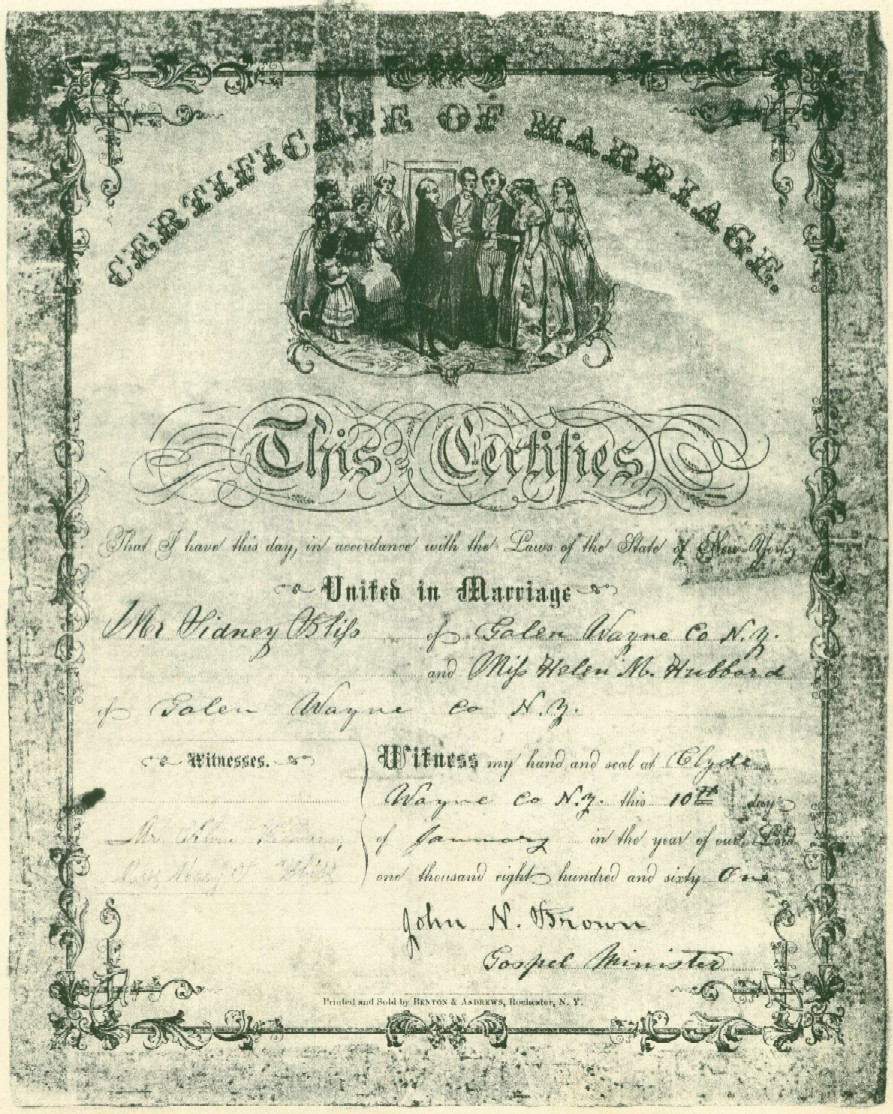 CERTIFICATE OF MARRIAGE.
This Certifies
That I have this day, in accordance with the Laws of the State of New York,
United in Marriage
Mr Sidney Bliss of Galen Wayne Co N.Y.
and Miss Helen M. Hubbard
of Galen Wayne Co N.Y.
Witnesses.
Mr
Miss Mary Bliss
Witness my hand and seal at Clyde
Wayne Co N.Y. this 10th day
of January in the year of our Lord
one thousand eight hundred and sixty One
John N. Brown
Gospel Minister
Printed and Sold by BENTON & ANDREWS, Rochester, N. Y.